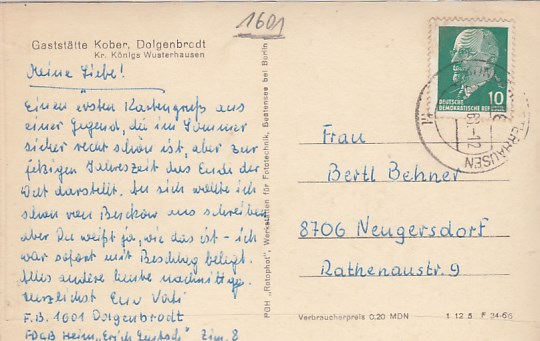 1601
Gaststätte Kober, Dolgenbrodt
Kr. Königs Wusterhausen
Meine Liebe!
Einen ersten Kartengruß aus
einer Gegend, die im Sommer
sicher recht schön ist, aber zur
jetzigen Jahreszeit das Ende der
Welt darstellt. An sich wollte ich
schon von Beskow aus schreiben
aber Du weißt ja, wie das ist - ich
war sofort mit Beschlag belegt.
Alles andere heute nachmittag.
Herzlichst Euer Vati
F.B. 1601 Dolgenbrodt
FDGB Heim "Erich " Zim. 8
PGH „Rotophot", Werkstätten für Fototechnik, Bestensee bei Berlin
10
DEUTSCHE
DEMOKRATISCHE REP
Frau
Bertl Behner
8706 Neugersdorf
Rathenaustr. 9
Verbraucherpreis 0,20 MDN
1 12 5 F 34-66